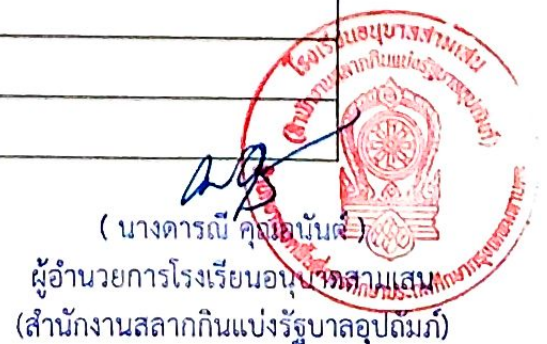 โรงเรียนอนุบาลสามเสน
(สำนักงานสลากกินแบ่งรัฐบาลอุปถัมภ์)
( นางดารณี คุณอนันต์ )
ผู้อำนวยการโรงเรียนอนุบาลสามเสน
(สำนักงานสลากกินแบ่งรัฐบาลอุปถัมภ์)